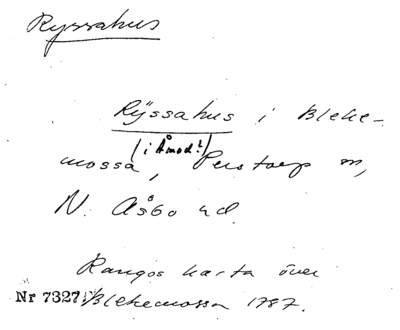 Ryssahus
Rÿssahus i Bleke-
(i Åmod?)
mossa, Perstorp sn,
N. Åsbo hd.
Rangos karta över
Nr 7327. Blekemossa 1787.